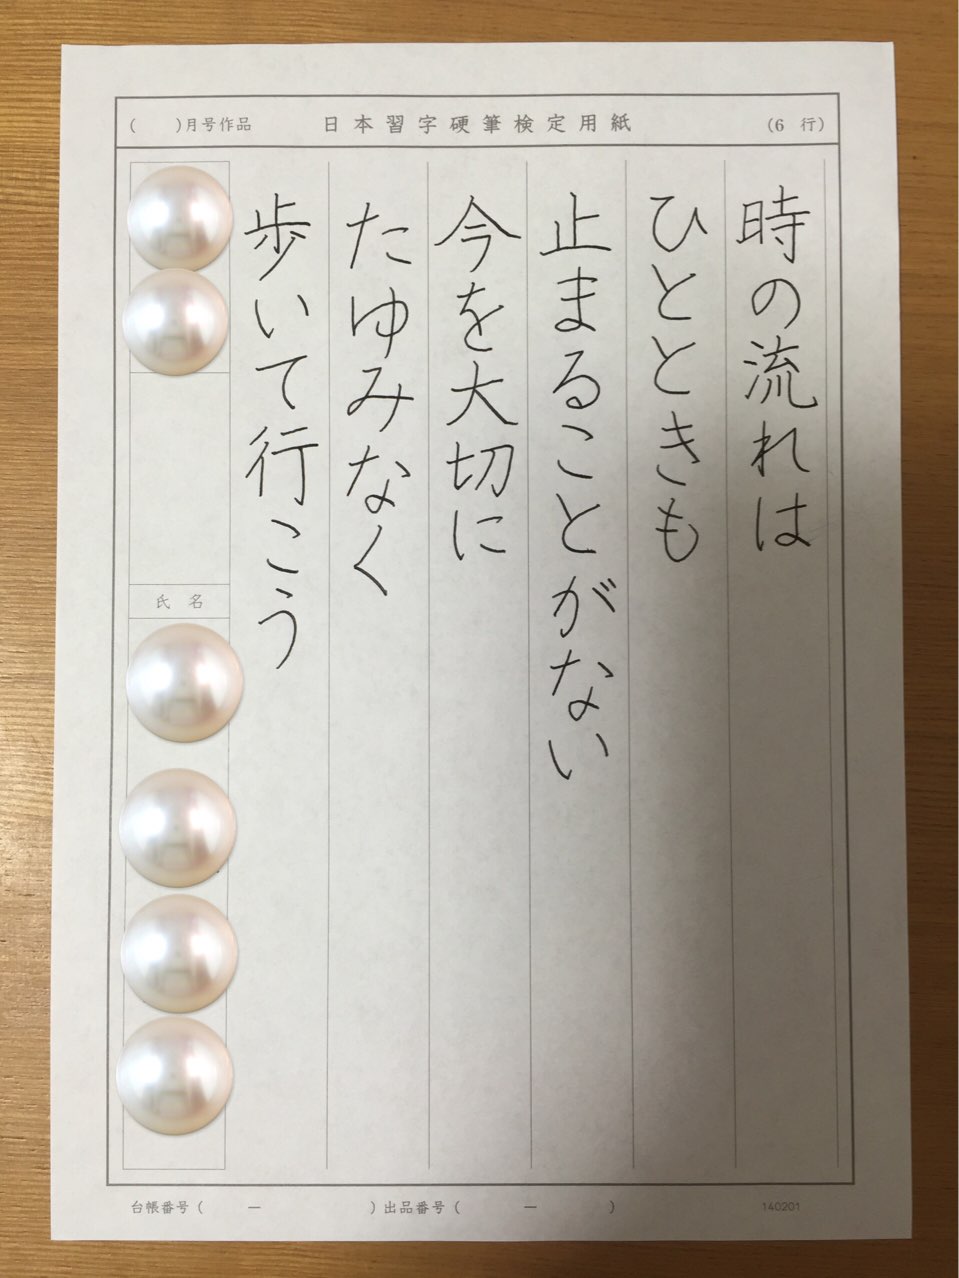 ( )月号作品 日本習字硬筆検定用紙 (6 行)
時の流れは
ひとときも
止まることがない
今を大切に
たゆみなく
歩いて行こう
氏名
台帳番号( ー )出品番号( ー )
140201